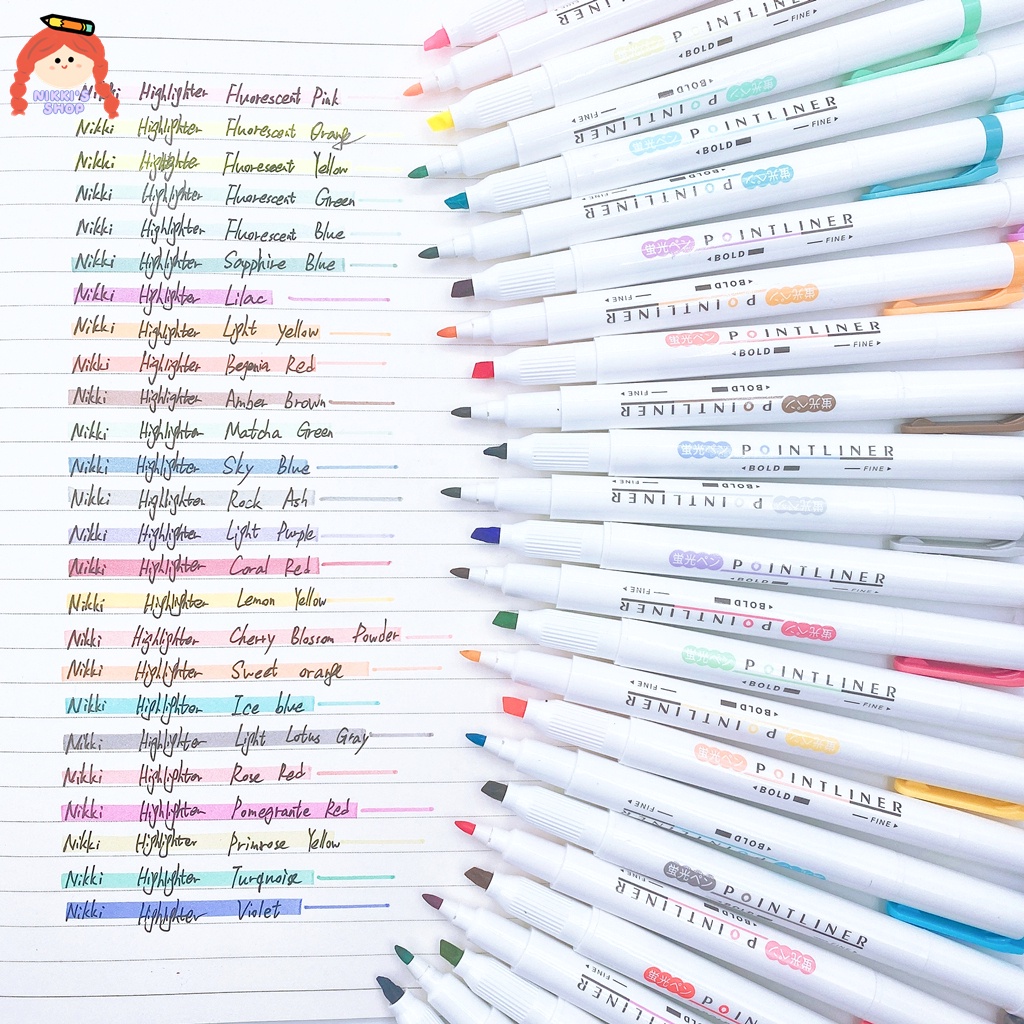 NIKKI'S
SHOP
Nikki Highlighter Fluorescent Pink
Nikki Highlighter Fluorescent Orange
Nikki Highlighter Fluorescent Yellow
Nikki Highlighter Fluorescent Green
Nikki Highlighter Fluorescent Blue
Nikki Highlighter Sapphire Blue
Nikki Highlighter Lilac
Nikki Highlighter Light yellow
Nikki Highlighter Begonia Red
Nikki Highlighter Amber Brown
Nikki Highlighter Matcha Green
Nikki Highlighter Sky Blue
Nikki Highlighter Rock Ash
Nikki Highlighter Light Purple
Nikki Highlighter Coral Red
Nikki Highlighter Lemon Yellow
Nikki Highlighter Cherry Blossom Powder
Nikki Highlighter Sweet orange
Nikki Highlighter Ice blue
Nikki Highlighter Light Lotus Gray
Nikki Highlighter Rose Red
Nikki Highlighter Pomegrante Red
Nikki Highlighter Primrose Yellow
Nikki Highlighter Turqnoise
Nikki Highlighter Violet
POINTLINER
POINTLINER
BOLD FINE
蛍光ペン POINTLINER
BOLD
蛍光ペン POINTLINER
BOLD FINE
蛍光ペン POINTLINER
BOLD
蛍光ペン POINTLINER
BOLD FINE
蛍光ペン POINTLINER
BOLD FINE
蛍光ペン POINTLINER
BOLD FINE
蛍光ペン POINTLINER
BOLD FINE
蛍光ペン POINTLINER
BOLD FINE
蛍光ペン POINTLINER
BOLD FINE
蛍光ペン POINTLINER
BOLD
蛍光ペン POINTLINER
BOLD FINE
蛍光ペン POINTLINER
BOLD FINE
蛍光ペン POINTLINER
BOLD FINE
蛍光ペン POINTLINER
BOLD FINE
BOLD FINE
蛍光ペン POINTLINER
蛍光ペン POINTLINER
BOLD
蛍光ペン POINT
FINE